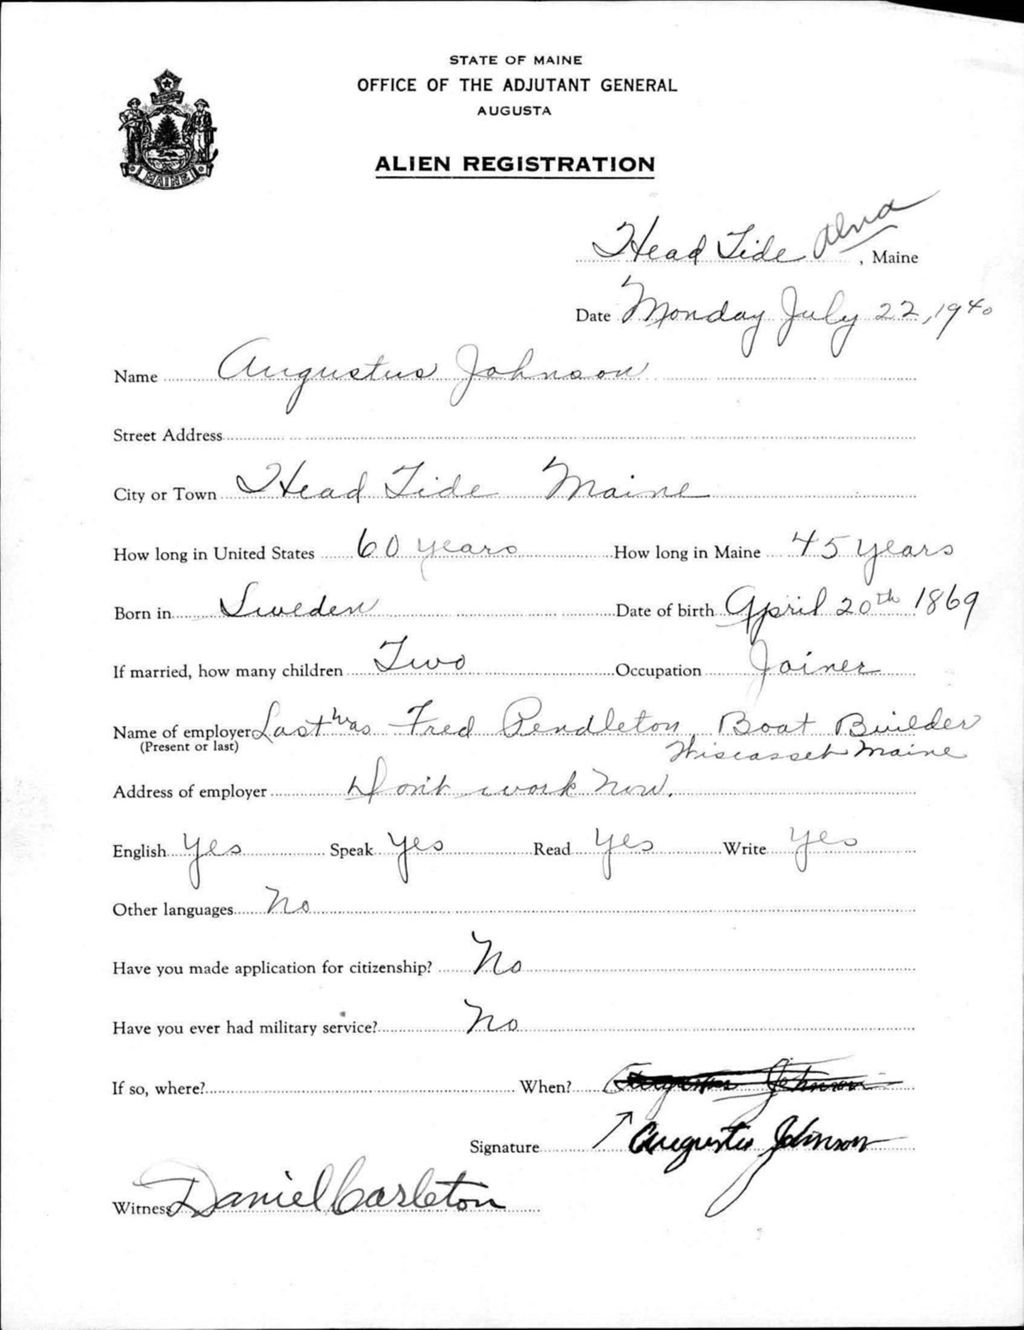 STATE OF MAINE
OFFICE OF THE ADJUTANT GENERAL
AUGUSTA
ALIEN REGISTRATION
MAINE
Head Tide Alna, Maine
Date Monday July 22, 1940
Name Augustus Johnson
Street Address
City or Town Head Tide Maine
How long in United States 60 years How long in Maine 45 years
Born in Sweden Date of birth April 20th 1869
If married, how many children Two Occupation Joiner
Name of employer Last was Fred Pendleton Boat Builder
(Present or last) Wiscasset Maine
Address of employer Don't work now.
English Yes Speak Yes Read Yes Write Yes
Other languages No
Have you made application for citizenship? No
Have you ever had military service? No
If so, where? When? Augustus Johnson
Signature Augustus Johnson
Witness Daniel Carleton